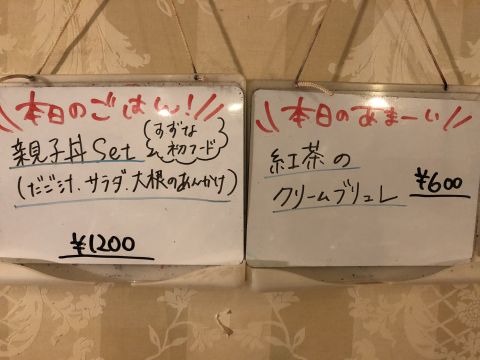 本日のごはん!
親子丼 Set
すずな
初フード
(だご汁、サラダ、大根のあんかけ)
¥1200
本日のあまーい
紅茶の
クリームブリュレ
¥600